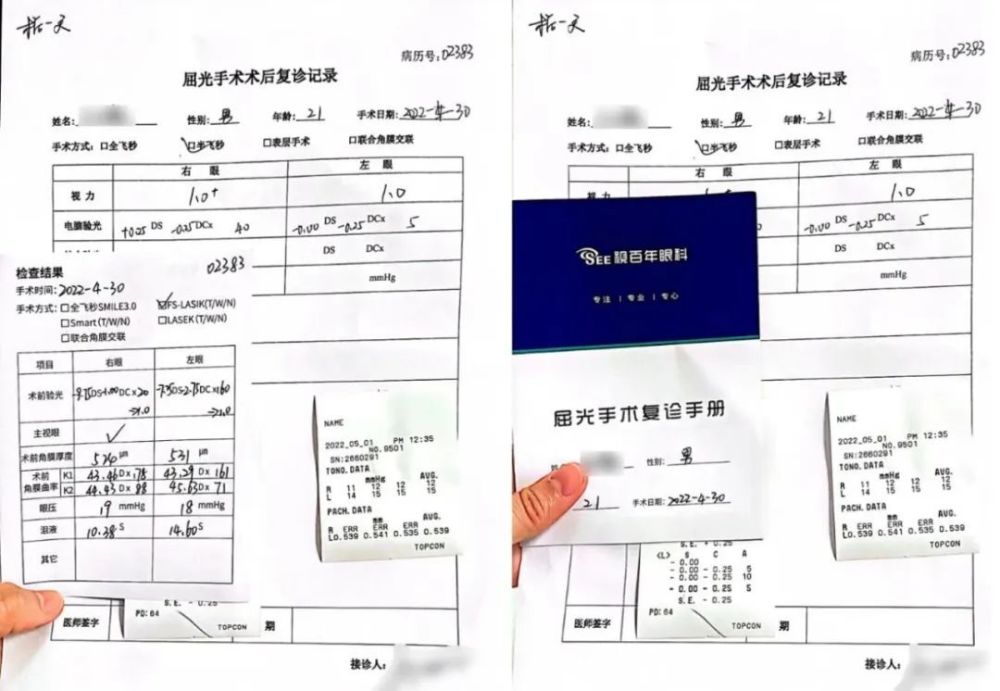 术后一天
病历号:02383
屈光手术术后复诊记录
姓名: 性别: 男 年龄: 21 手术日期: 2022-4-30
手术方式: 口全飞秒 口半飞秒 口表层手术 口联合角膜交联
右 眼 左 眼
视 力 1.0+ 1.0
电脑验光 +0.25 DS -0.25 DCx 40 -0.00 DS -0.25 DCx 5
DS DCx
mmHg
检查结果 02383
手术时间: 2022-4-30
手术方式: 口全飞秒SMILE3.0 口FS-LASIK(T/W/N)
口Smart(T/W/N) 口LASEK(T/W/N)
口联合角膜交联
项目 右眼 左眼
术前验光
→1.0 →1.0
主视眼 ✓
术前角膜厚度 520 μm 531 μm
术前角膜曲率 K1 43.46 D x 178 43.29 D x 161
K2 44.43 D x 88 45.63 D x 71
眼压 19 mmHg 18 mmHg
泪液 10.38 S 14.60 S
其它
NAME
2022_05_01 PM 12:35
NO.9501
SN:2660291
TONO.DATA
mmHg AVG.
R 11 12 12 12
L 14 15 15 15
PACH.DATA
mm AVG.
R ERR ERR ERR
L0.539 0.541 0.535 0.539
TOPCON
S.E. - 0.25
PD: 64
TOPCON
医师签字 期
接诊人:
术后一天
病历号:02383
屈光手术术后复诊记录
姓名: 性别: 男 年龄: 21 手术日期: 2022-4-30
手术方式: 口全飞秒 口半飞秒 口表层手术 口联合角膜交联
右 眼 左 眼
视 力 1.0
-0.00 DS -0.25 DCx 5
DS DCx
mmHg
SEE视百年眼科
专注 | 专业 | 专心
屈光手术复诊手册
性别: 男
21 手术日期: 2022-4-30
NAME
2022_05_01 PM 12:35
NO.9501
SN:2660291
TONO.DATA
mmHg AVG.
R 11 12 12 12
L 14 15 15 15
PACH.DATA
mm AVG.
R ERR ERR ERR
L0.539 0.541 0.535 0.539
TOPCON
S.E. + 0.25
<L> S C A
- 0.00
- 0.00 - 0.25 5
- 0.00 - 0.25 10
- 0.00 - 0.25 5
S.E. - 0.25
PD: 64
TOPCON
医师签字 期
接诊人: